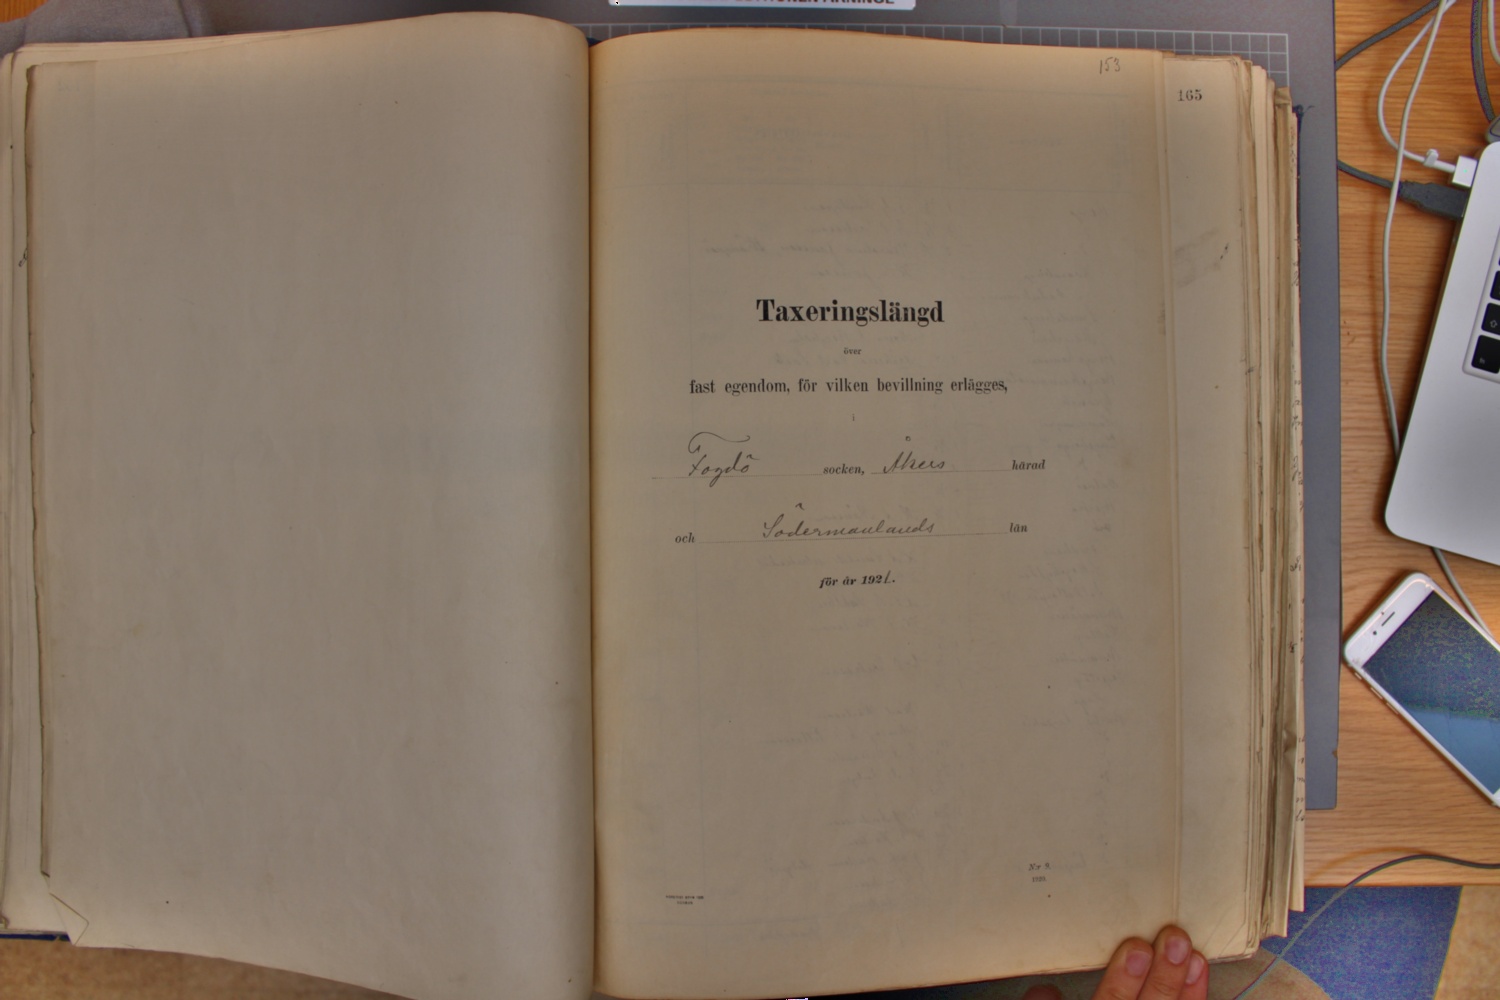 153
165
Taxeringslängd
över
fast egendom, för vilken bevillning erlägges,
i
Fogdö socken, Åkers härad
och Södermanlands län
för år 1921.
N:r 9.